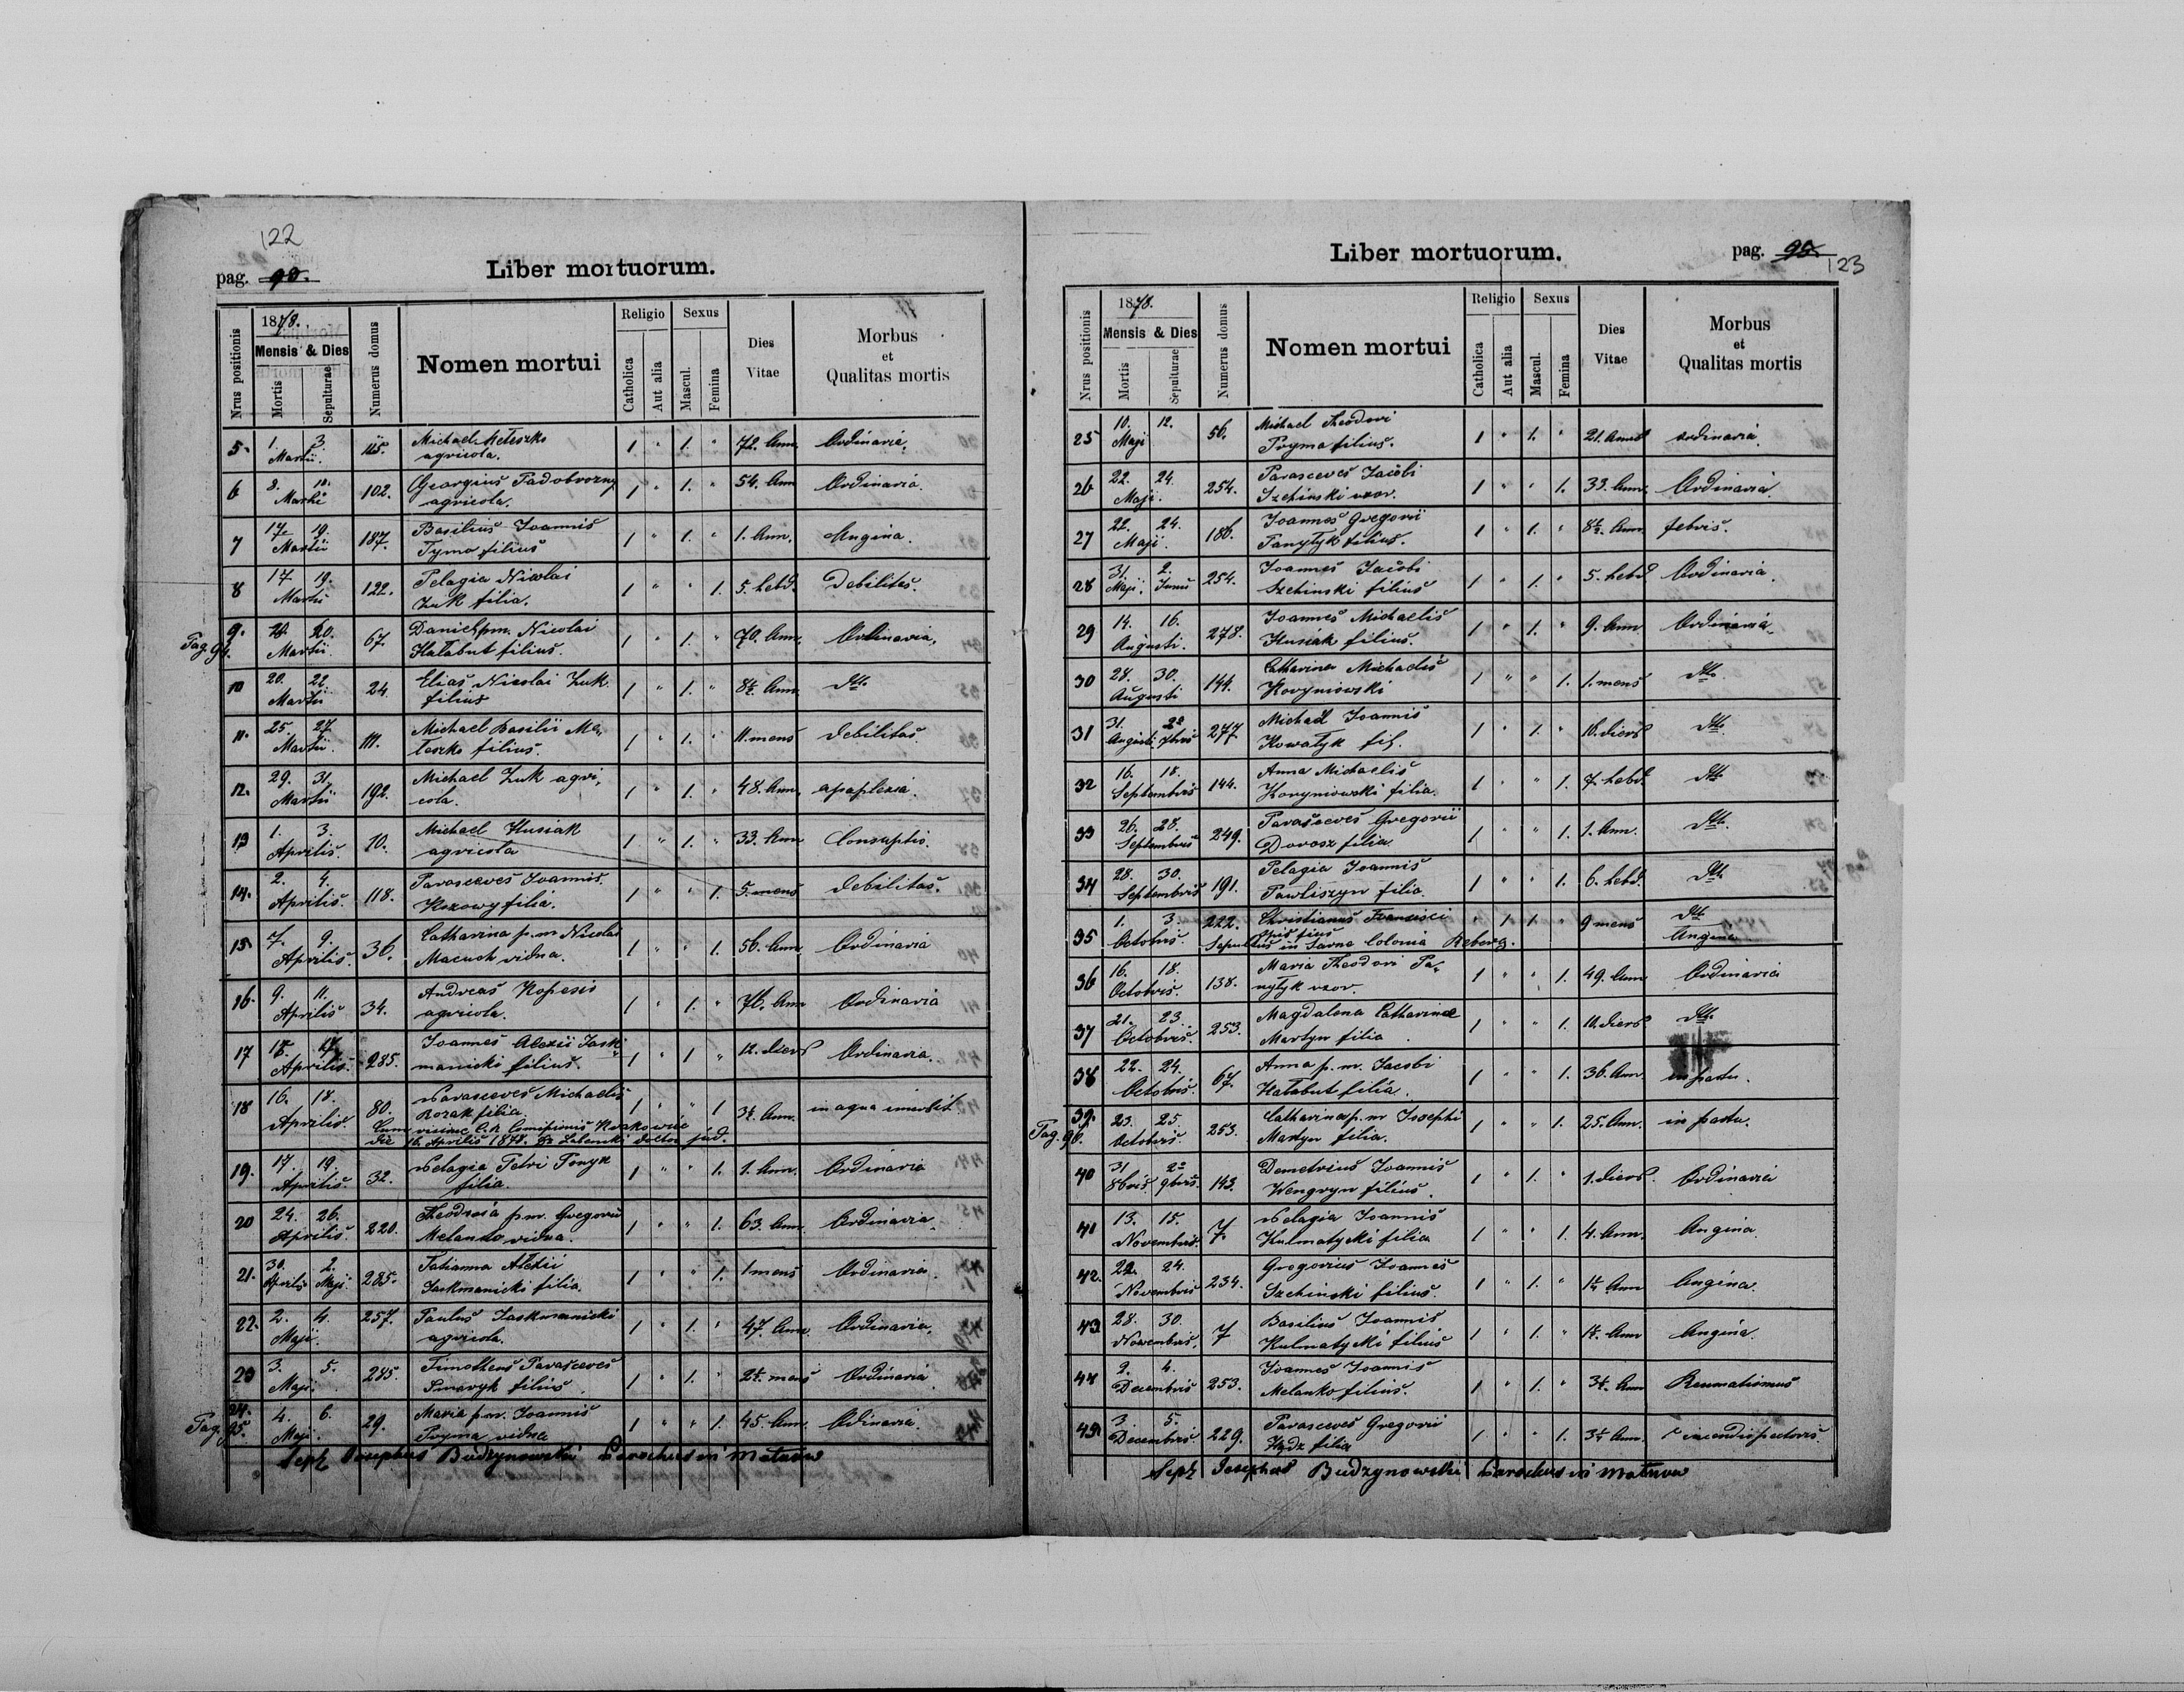 122
pag. 90.
Liber mortuorum.
Nrus positionis
1878.
Mensis & Dies
Mortis
Sepulturae
Numerus domus
Nomen mortui
Religio
Catholica
Aut alia
Sexus
Mascul.
Femina
Dies
Vitae
Morbus
et
Qualitas mortis
5. 1. 3. Martii. 115. Michael Meleszko 1 " 1. " 72. Ann. Ordinaria.
agricola.
6 8. 10. Martii 102. Georgius Padobrozny 1 " 1. " 54. Ann Ordinaria.
agricola.
7 17. 19. Martii 187. Basilius Joannis 1 " 1. " 1. Ann. Angina.
Tymo filius
8 17. 19. Martii 122. Pelagia Nicolai 1 " " 1. 5. hebd. Debilitas.
Zuk filia.
Pag. 94.
9. 20. Martii 67. Daniel p.m. Nicolai 1 " 1. " 70. Ann. Ordinaria.
Hałabut filius.
10 20. 22. Martii 24. Elias Nicolai Zuk 1 " 1. " 8½ Ann. dtto.
filius
11. 25. 27. Martii. 111. Michael Basilii Me, 1 " 1. " 11. mens debilitas.
leszko filius.
12. 29. 31. Martii 192. Michael Zuk agri, 1 " 1. " 48. Ann. apoplexia.
cola.
13 1. 3. Aprilis. 10. Michael Husiak 1 " 1. " 33. Ann Consuptio.
agricola
14. 2. 4. Aprilis. 118. Parasceves Joannis 1 " " 1. 5. mens debilitas.
Kozowy filia.
15. 7. 9. Aprilis. 36. Catharina p.m Nicolai 1 " " 1. 56. Ann Ordinaria
Macuch vidua.
16. 9. 11. Aprilis 34. Andreas Kopesio 1 " 1. " 76. Ann Ordinaria
agricola.
17 15. 17. Aprilis. 285. Joannes Alexii Jask, 1 " 1 " 12. dierū Ordinaria.
manicki filius.
18 16. 18. Aprilis 80. Parasceves Michaelis 1 " " 1 3½ Ann. in aqua
Kozak filia.
Comissionis Krakowiec
die 16. Aprilis 1878. doctor jud.
19. 17. 19. Aprilis. 32. Pelagia Petri 1 " " 1. 1. Ann. Ordinaria
filia.
20 24. 26. Aprilis. 220. Theodosia p.m. Gregorii 1 " " 1. 63. Ann Ordinaria
Melanko vidua.
21. 30. Aprilis 2. Maji 285. Tatianna Alexii 1 " " 1. 1 mens Ordinaria.
Jaskmanicki filia.
22. 2. 4. Maji. 257. Paulus Jaskmanicki 1 " 1. " 47. Ann Ordinaria.
agricola.
23 3. 5. Maji. 245. Timotheus Parasceves 1 " 1. " 2½ mens Ordinaria
filius
Pag. 95.
24. 4. 6. Maji. 29. Maria p.m. Joannis 1 " " 1. 45. Ann. Odinaria.
Pryma vidua
Josephus Budzynowski Parochus in Malnow
Liber mortuorum.
pag. 95.
123
Nrus positionis
1878.
Mensis & Dies
Mortis
Sepulturae
Numerus domus
Nomen mortui
Religio
Catholica
Aut alia
Sexus
Mascul.
Femina
Dies
Vitae
Morbus
et
Qualitas mortis
25 10. 12. Maji 56. Michael Theodori 1 " 1. " 21. Ann ordinaria.
Pryma filius.
26 22. 24. Maji. 254. Parasceves Jacobi 1 " " 1. 33. Ann. Ordinaria.
Szehinski uxor.
27 22. 24. Maji. 186. Joannes Gregorii 1 " 1. " 8½. Ann. febris.
Panytyk filius.
28 31. Maji. 2. Junii 254. Joannes Jacobi 1 " 1. " 5. hebd Ordinaria.
Szehinski filius
29 14. 16. Augusti. 278. Joannes Michaelis 1 " 1. " 9. Ann Ordinaria.
Husiak filius.
30 28. 30. Augusti 144. Catharina Michaelis 1 " " 1. 1. mens dtto.
Koryniowski
31 31. Augusti 2. 7bris 277 Michael Joannis 1 " 1. " 10. dierū dtto.
Kowałyk fil.
32 16. 18. Septembris 144. Anna Michaelis 1 " " 1. 7. hebd. dtto.
Koryniowski filia.
33 26. 28. Septembris 249. Parasceves Gregorii 1 " " 1. 1. Ann. dtto.
Dorosz filia.
34 28. 30. Septembris 191. Pelagia Joannis 1 " " 1. 6. hebd. dtto.
Pawliszyn filia.
35 1. 3. Octobris. 222. Christianus Francisci " 1 1. " 9 mens dtto.
Angina
Sepultus in Colonia Reberg.
36 16. 18. Octobris. 138. Maria Theodori Pa, 1 " " 1. 49. Ann Ordinaria
nytyk uxor.
37 21. 23. Octobris. 253. Magdalena Catharinae 1 " " 1. 10. dierū dtto.
Martyn filia.
38 22. 24. Octobris. 67. Anna p.m. Jacobi 1 " " 1. 36. Ann. in partu.
Hałabut filia.
Pag. 96.
39. 23. 25. Octobris. 253. Catharina p.m Josephi 1 " " 1. 25. Ann. in partu.
Martyn filia.
40 31 8bris. 2. 9bris. 143. Demetrius Joannis 1 " 1. " 1. dierū. Ordinaria
Wengryn filius.
41 13. 15. Novembris. 7. Pelagia Joannis 1 " " 1. 4. Ann. Angina.
Kulmatycki filia
42. 22. 24. Novembris 234. Gregorius Joannes 1 " 1. " 1½ Ann Angina.
Szehinski filius.
43 28. 30. Novembris. 7 Basilius Joannis 1 " 1. " Ann Angina.
Kulmatycki filius
44 2. 4. Decembris 253. Joannes Joannis 1 " 1. " 3½. Ann Reumatismus
Melanko filius.
45 3. 5. Decembris. 229. Parasceves Gregorii 1 " " 1. 3½ Ann.
Hydz filia
Josephus Budzynowski Parochus in Malnow